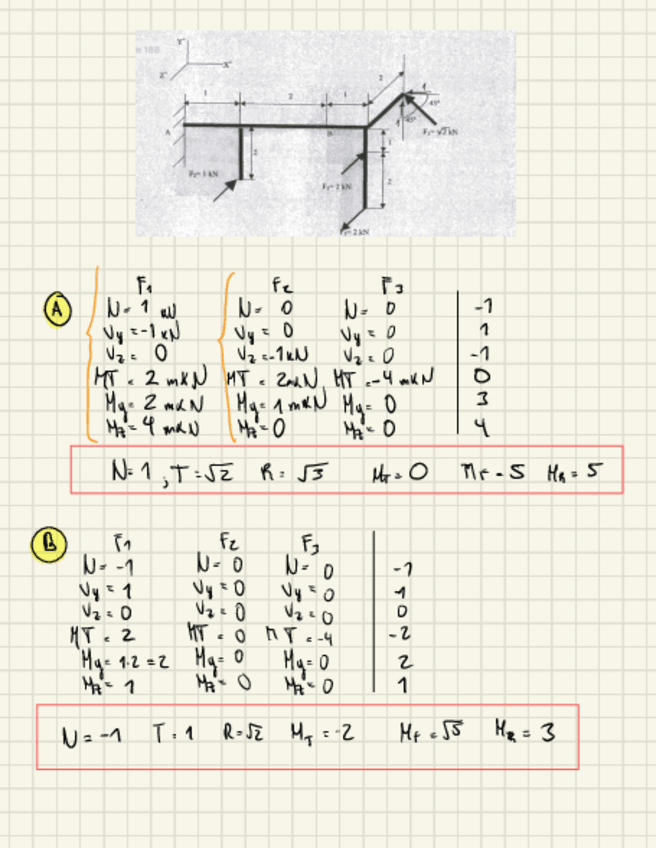 Y"
X"
Z"
1 2 1 2
A
B
45°
45°
F₁=√2 kN
2
1
2
F₂=1 kN
F₃=2 kN
F₃=2 kN
A
F₁ F₂ F₃
N= 1 kN N= 0 N= 0 -1
Vy=-1 kN Vy= 0 Vy= 0 1
Vz= 0 Vz=-1kN Vz=0 -1
MT= 2 mkN MT= 2mkN MT=-4 mkN 0
My= 2 mkN My= 1 mkN My= 0 3
Mz= 4 mkN Mz=0 Mz= 0 4
N=1, T=√2 R= √3 MT=0 Mf=5 MR=5
B
F₁ F₂ F₃
N= -1 N= 0 N= 0 -1
Vy= 1 Vy=0 Vy=0 1
Vz=0 Vz=0 Vz=0 0
MT= 2 MT= 0 MT=-4 -2
My= 1·2=2 My= 0 My=0 2
Mz= 1 Mz= 0 Mz= 0 1
N=-1 T=1 R=√2 MT=-2 Mf=√5 MR= 3